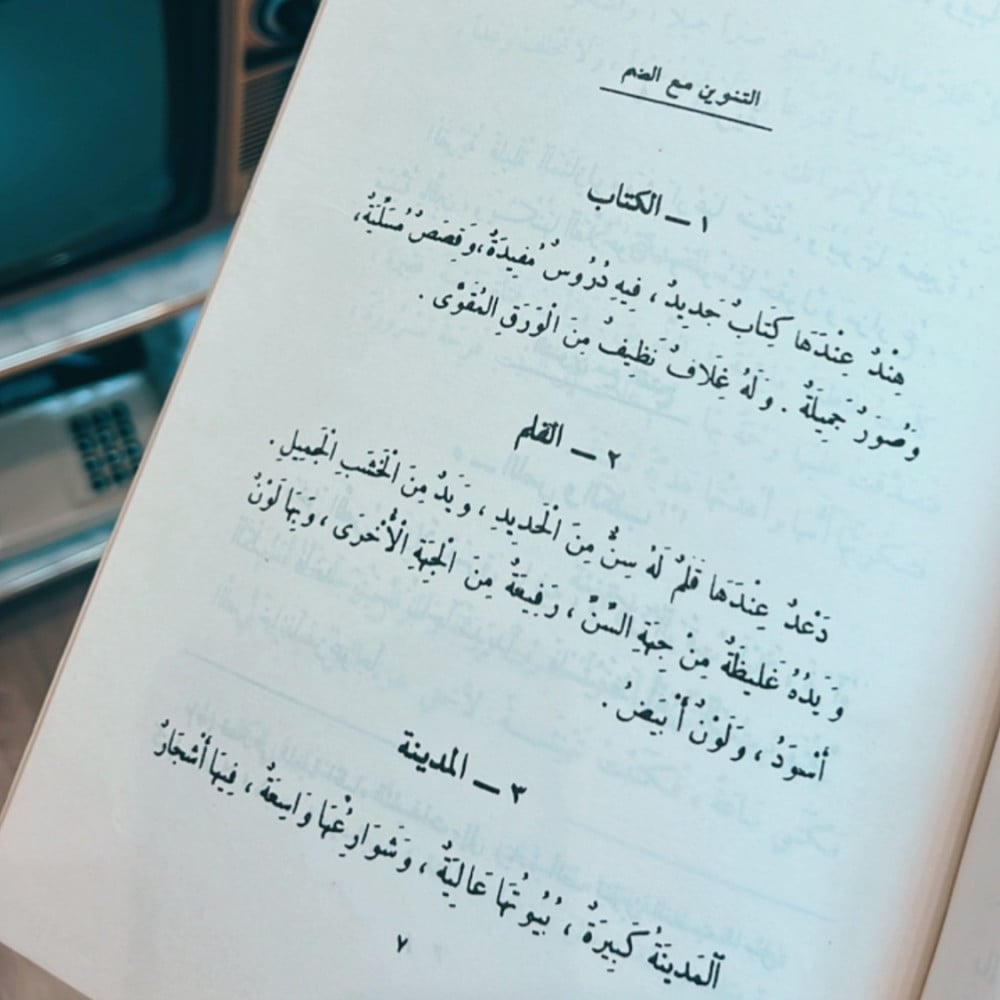 التنوين مع الضم
١ ــ الكتاب
هِنْدُ عِنْدَهَا كِتَابٌ جَدِيدٌ ، فِيهِ دُرُوسٌ مُفِيدَةٌ ، وَقِصَصٌ مُسَلِّيَةٌ ،
وَصُوَرٌ جَمِيلَةٌ . وَلَهُ غِلَافٌ نَظِيفٌ مِنَ الْوَرَقِ المُقَوَّى .
٢ ــ القلم
دَعْدُ عِنْدَهَا قَلَمٌ لَهُ سِنٌّ مِنَ الْحَدِيدِ ، وَيَدٌ مِنَ الْخَشَبِ الْجَمِيلِ .
وَيَدُهُ غَلِيظَةٌ مِنْ جِهَةِ السِّنِّ ، رَفِيعَةٌ مِنَ الْجِهَةِ الْأُخْرَى ، وَبِهَا لَوْنٌ
أَسْوَدُ ، وَلَوْنٌ أَبْيَضُ .
٣ ــ المدينة
اَلْمَدِينَةُ كَبِيرَةٌ ، بُيُوتُهَا عَالِيَةٌ ، وَشَوَارِعُهَا وَاسِعَةٌ ، فِيهَا أَشْجَارٌ
٧